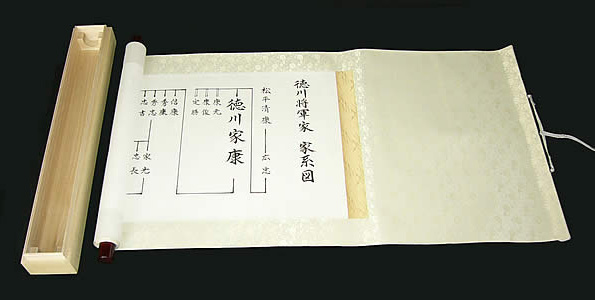 徳川将軍家 家系図
松平清康
広忠
徳川家康
康元
康俊
定勝
信康
秀康
秀忠
忠吉
家光
忠長